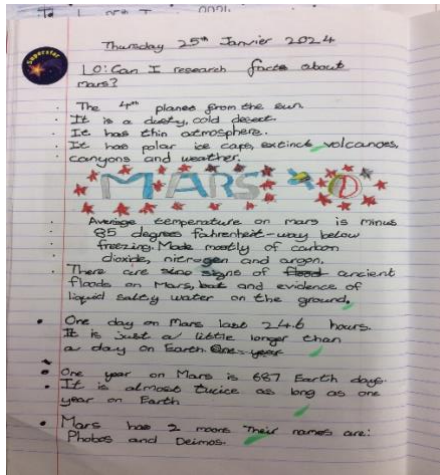 Superstar
Thursday 25th Janvier 2024
LO: Can I research facts about
Mars?
· The 4th planet from the sun
· It is a dusty, cold desert.
· It has thin atmosphere.
· It has polar ice caps, extinct volcanoes,
canyons and weather.
MARS
· Average temperature on mars is minus
85 degrees fahrenheit - way below
freezing. Made mostly of carbon
dioxide, nitrogen and argon.
· There are signs of ancient
floods on Mars, and evidence of
liquid salty water on the ground.
• One day on Mars last 24.6 hours.
It is just a little longer than
a day on Earth. One year
• One year on Mars is 687 Earth days.
• It is almost twice as long as one
year on Earth
• Mars has 2 moons Their names are:
Phobos and Deimos.